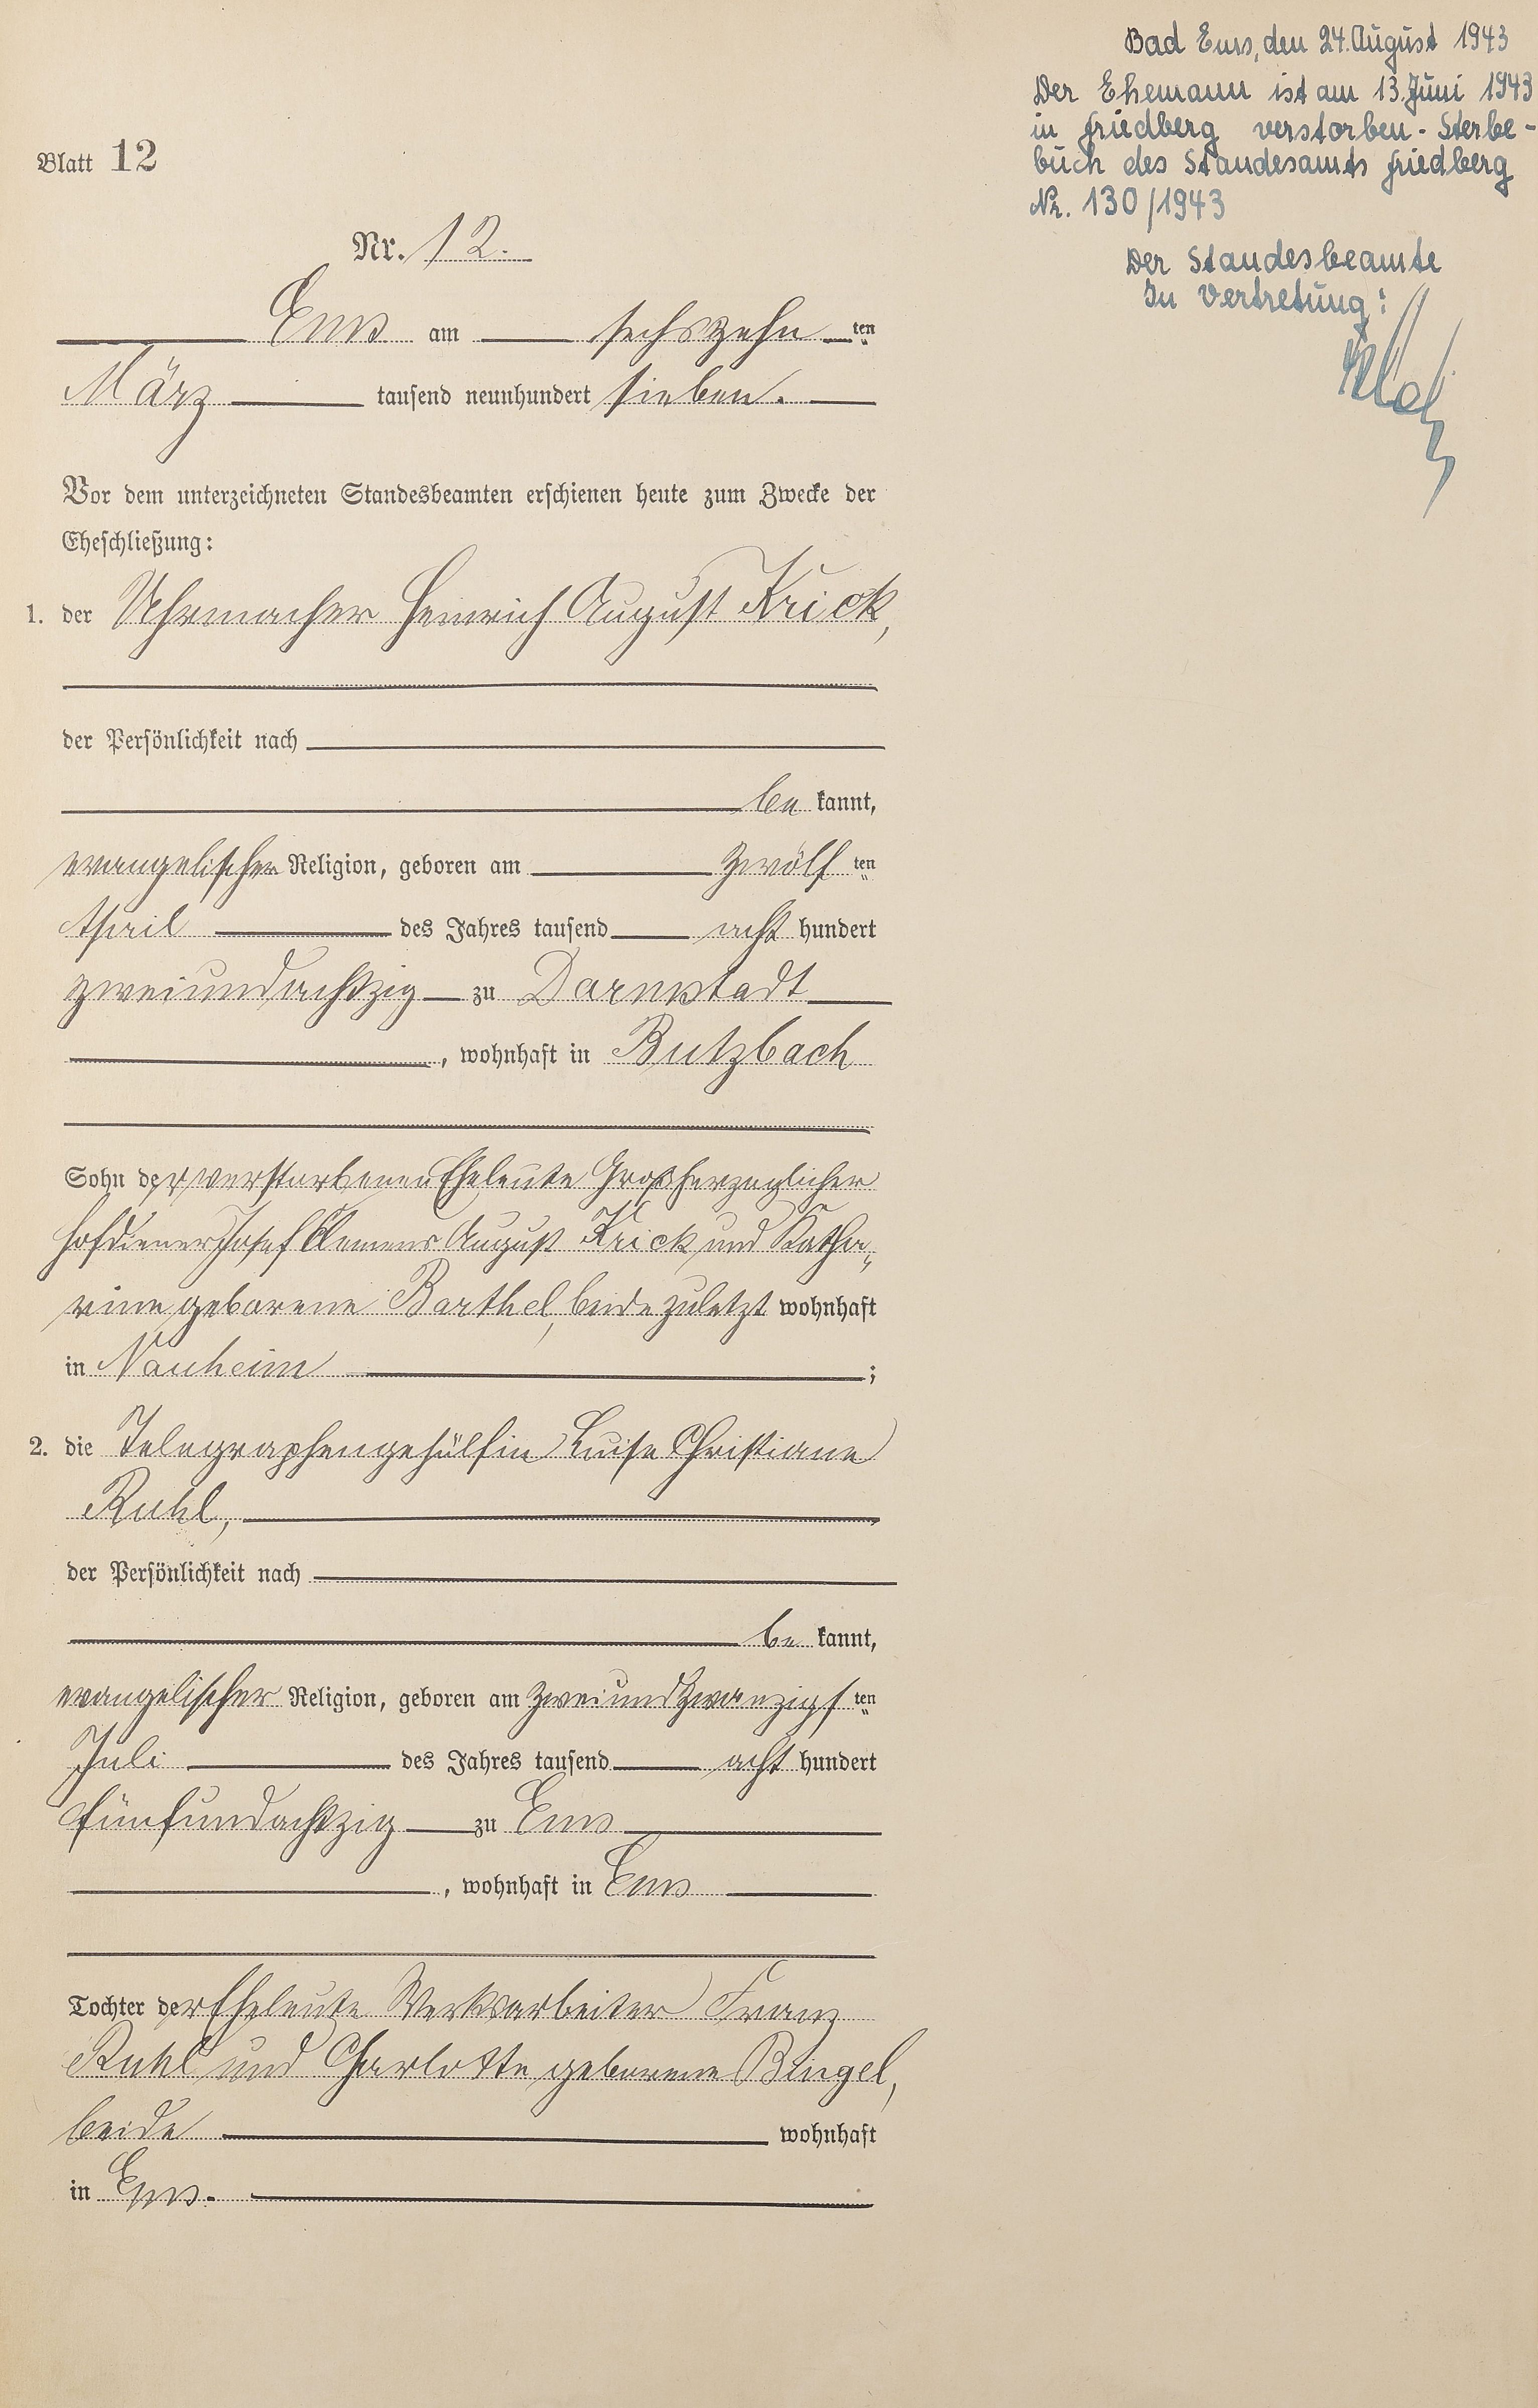 Blatt 12
Nr. 12.
Ems am sechszehn ten
März tausend neunhundert sieben.
Vor dem unterzeichneten Standesbeamten erschienen heute zum Zwecke der
Eheschließung:
1. der Uhrmacher Heinrich August Krick,
der Persönlichkeit nach
be kannt,
evangelischer Religion, geboren am zwölf ten
April des Jahres tausend acht hundert
zweiundachtzig zu Darmstadt
, wohnhaft in Butzbach
Sohn der verstorbenen Eheleute Großherzoglicher
Hofdiener Josef Clemens August Krick und Katha-
rine geborene Barthel, beide zuletzt wohnhaft
in Nauheim ;
2. die Telegraphengehülfin Luise Christiane
Ruhl,
der Persönlichkeit nach
be kannt,
evangelischer Religion, geboren am zweiundzwanzigs ten
Juli des Jahres tausend acht hundert
fünfundachtzig zu Ems
, wohnhaft in Ems
Tochter der Eheleute Werksarbeiter Franz
Ruhl und Charlotte geborene Bingel,
beide wohnhaft
in Ems.
Bad Ems, den 24. August 1943
Der Ehemann ist am 13. Juni 1943
in Friedberg verstorben - Sterbe-
buch des Standesamts Friedberg
Nr. 130/1943
Der Standesbeamte
In Vertretung: